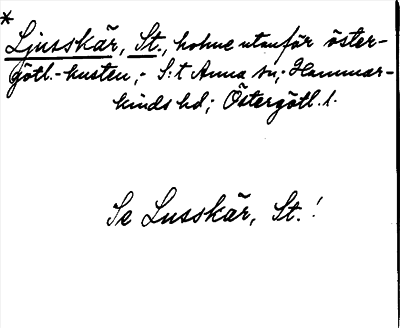 *
Ljusskär, St., holme utanför öster-
götl.-kusten,- S:t Anna sn; Hammar-
kinds hd; Östergötl. l.
Se Lusskär, St.!